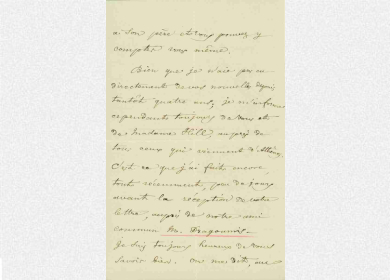 à son père et vous pouvez y
compter vous même.
Bien que je n'aie pas eu
directement de vos nouvelles depuis
tantôt quatre ans, je m'informe
cependant toujours de vous et
de Madame Hill auprès de
tous ceux qui viennent d'Athènes
C'est ce que j'ai fait encore
tout récemment, peu de jours
avant la réception de votre
lettre, auprès de notre ami
commun M. Dragoumis.
Je suis toujours heureux de vous
savoir bien. On me dit, que